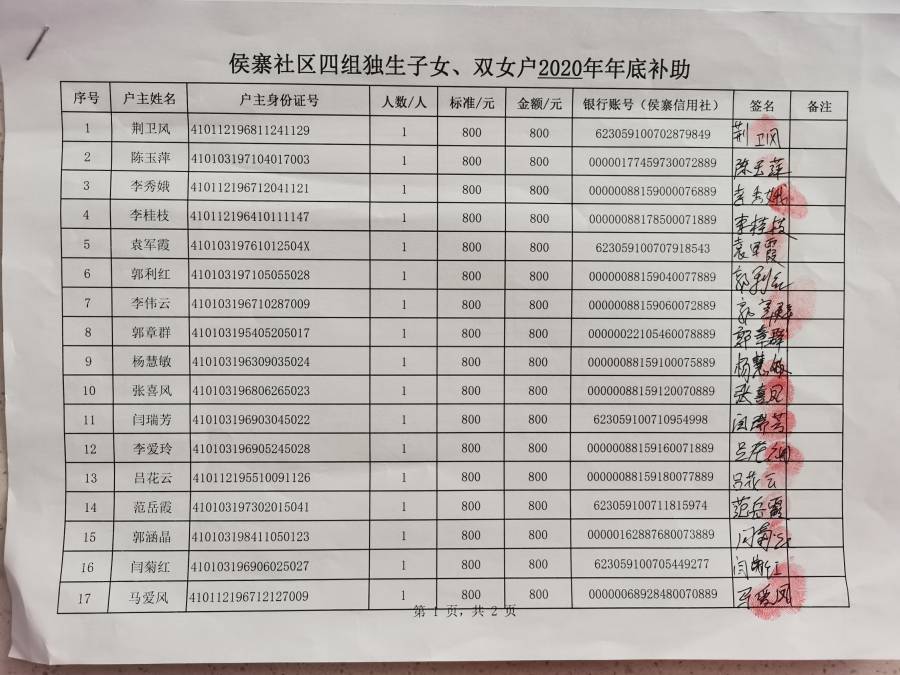 侯寨社区四组独生子女、双女户2020年年底补助
序号 户主姓名 户主身份证号 人数/人 标准/元 金额/元 银行账号（侯寨信用社） 签名 备注
1 荆卫风 410112196811241129 1 800 800 623059100702879849 荆卫风
2 陈玉萍 410103197104017003 1 800 800 00000177459730072889 陈玉萍
3 李秀娥 410112196712041121 1 800 800 00000088159000076889 李秀娥
4 李桂枝 410112196410111147 1 800 800 00000088178500071889 李桂枝
5 袁军霞 41010319761012504X 1 800 800 623059100707918543 袁军霞
6 郭利红 410103197105055028 1 800 800 00000088159040077889 郭利红
7 李伟云 410103196710287009 1 800 800 00000088159060072889
8 郭章群 410103195405205017 1 800 800 00000022105460078889 郭章群
9 杨慧敏 410103196309035024 1 800 800 00000088159100075889 杨慧敏
10 张喜风 410103196806265023 1 800 800 00000088159120070889 张喜风
11 闫瑞芳 410103196903045022 1 800 800 623059100710954998 闫瑞芳
12 李爱玲 410103196905245028 1 800 800 00000088159160071889
13 吕花云 410112195510091126 1 800 800 00000088159180077889 吕花云
14 范岳霞 410103197302015041 1 800 800 623059100711815974 范岳霞
15 郭涵晶 410103198411050123 1 800 800 00000162887680073889
16 闫菊红 410103196906025027 1 800 800 623059100705449277 闫菊红
17 马爱风 410112196712127009 1 800 800 00000068928480070889 马爱风
第 1 页，共 2 页